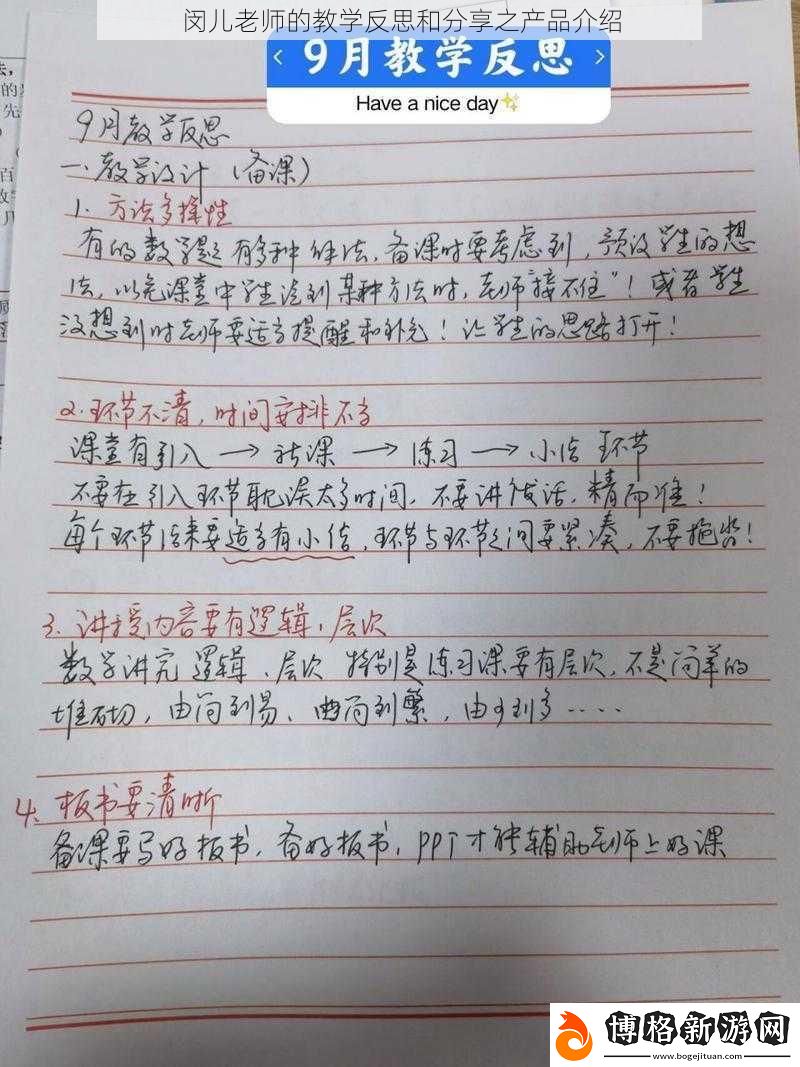 闵儿老师的教学反思和分享之产品介绍
9月教学反思
Have a nice day✨
9月教学反思
一.教学设计（备课）
1. 方法多样性
有的数学题有多种解法,备课时要考虑到,预设学生的想
法,以免课堂中学生说到某种方法时,老师"接不住"！或者学生
没想到时老师要适当提醒和补充！让学生的思路打开！
2.环节不清,时间安排不当
课堂有引入 → 新课 → 练习 → 小结 环节
不要在引入环节耽误太多时间,不要讲废话,精而准！
每个环节结束要适当有小结,环节与环节之间要紧凑,不要拖沓！
3. 讲授内容要有逻辑、层次
数学讲究逻辑、层次 特别是练习课要有层次,不是简单的
堆砌,由简到易、由简到繁,由少到多.....
4. 板书要清晰
备课要写好板书,备好板书,PPT才能辅助老师上好课
博格新游网
www.bogejituan.com